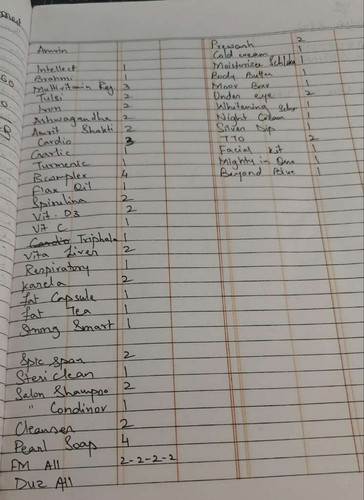 Amrin
Intellect 1
Brahmi 1
Multivitamin Reg. 3
Tulsi 2
Iron 2
Ashwagandha 2
Amrit Shakti 2
Cardio 3
Garlic 1
Turmeric 1
Bcomplex 4
Flax Oil 1
Spirulina 2
Vit. D3 2
Vit C 1
Cardio Triphala 1
Vita Liver 2
Respiratory 1
Karela 2
fat Capsule 1
fat Tea 1
Strong Smart 1
Spic Span 2
Steri clean 1
Salon Shampoo 2
" Condinor 1
Cleanser 2
Pearl Soap 4
FM All 2-2-2-2
Duz All
Prewash 2
Cold cream 1
Moisturiser 1
Body Butter 1
Moor 1
Under eye 2
Whitening 1
Night Cream 1
Silver Dip 1
TTO 2
Facial kit 1
Mighty in 1
Beyond Blue 1